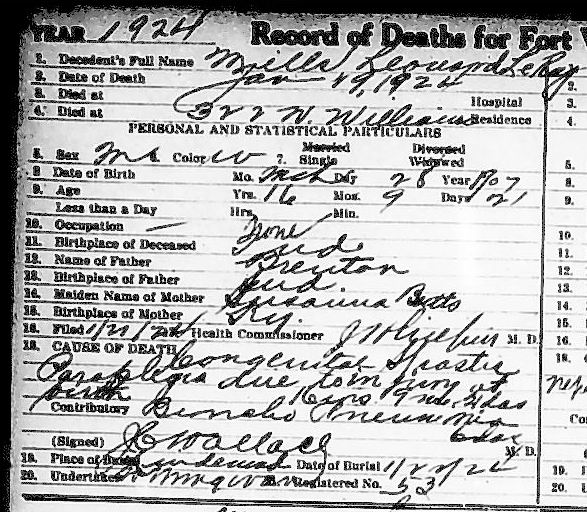 YEAR 1924 Record of Deaths for Fort
1. Decedent's Full Name Mills Leonard LeRoy
2. Date of Death Jan 19, 1924 2.
3. Died at Hospital 3.
4. Died at 322 W. Williams Residence 4.
PERSONAL AND STATISTICAL PARTICULARS
Married Divorced
5. Sex M Color W 7. Single Widowed 5.
8 Date of Birth Mo. Mch Day 28 Year 1907 8.
9. Age Yrs. 16 Mos. 9 Days 21 9.
Less than a Day Hrs. Min.
10. Occupation — None 10.
11. Birthplace of Deceased Ind 11.
12. Name of Father Brenton 12.
13. Birthplace of Father Ind 13.
14. Maiden Name of Mother Susanna Botts 14.
15. Birthplace of Mother Ky. 15.
16. Filed 1/21/24 Health Commissioner M. D. 16.
18. CAUSE OF DEATH Congenital Spastic 18.
Paraplegia due to injury at
birth 16 yrs 9 mo 21 das
Contributory Broncho Pneumonia
(Signed) JC Wallace M. D.
19. Place of Burial Lindenwood Date of Burial 1/21/24 19.
20. Undertaker Registered No. 53 20.